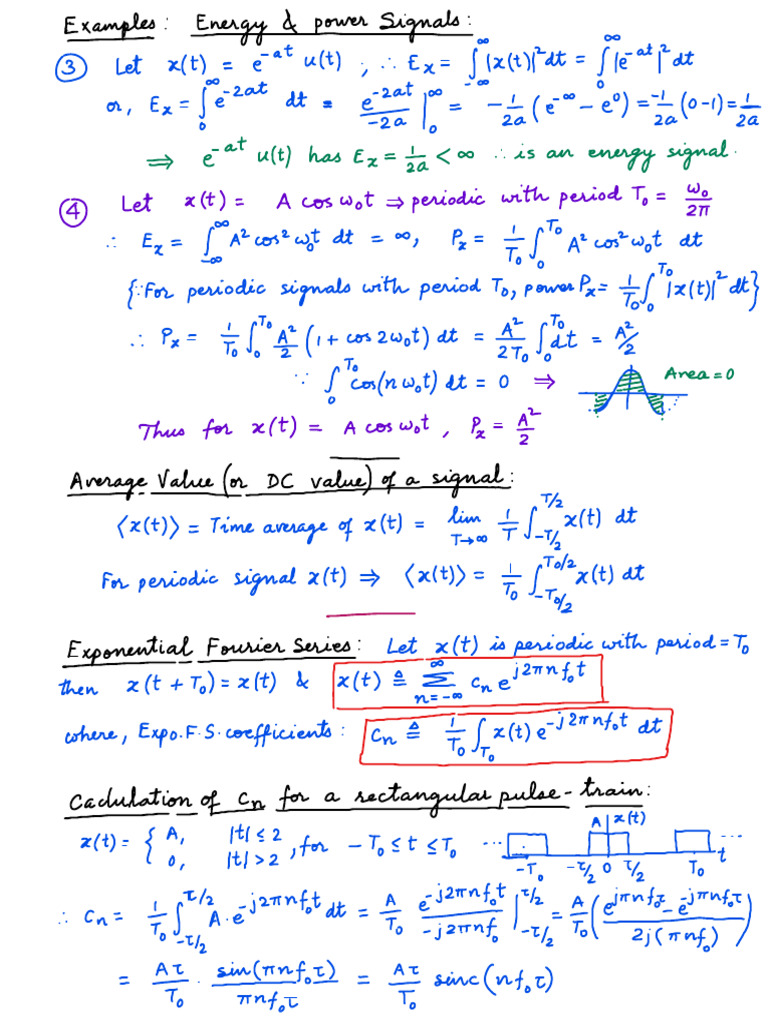 Examples: Energy & power Signals:
③ Let x(t) = e^{-at} u(t) , ∴ E_x = ∫_{-∞}^{∞} |x(t)|² dt = ∫_0^∞ |e^{-at}|² dt
or, E_x = ∫_0^∞ e^{-2at} dt = e^{-2at}/-2a |_0^∞ = -1/2a (e^{-∞} - e^0) = -1/2a (0-1) = 1/2a
⇒ e^{-at} u(t) has E_x = 1/2a < ∞ ∴ is an energy signal.
④ Let x(t) = A cos ω₀t ⇒ periodic with period T₀ = ω₀/2π
∴ E_x = ∫_{-∞}^{∞} A² cos² ω₀t dt = ∞, P_x = 1/T₀ ∫_0^{T₀} A² cos² ω₀t dt
{∵ For periodic signals with period T₀, power P_x = 1/T₀ ∫_0^{T₀} |x(t)|² dt}
∴ P_x = 1/T₀ ∫_0^{T₀} A²/2 (1 + cos 2ω₀t) dt = A²/2T₀ ∫_0^{T₀} dt = A²/2
∵ ∫_0^{T₀} cos(nω₀t) dt = 0 ⇒ Area = 0
Thus for x(t) = A cos ω₀t , P_x = A²/2
Average Value (or DC value) of a signal:
⟨x(t)⟩ = Time average of x(t) = lim_{T→∞} 1/T ∫_{-T/2}^{T/2} x(t) dt
For periodic signal x(t) ⇒ ⟨x(t)⟩ = 1/T₀ ∫_{-T₀/2}^{T₀/2} x(t) dt
Exponential Fourier Series: Let x(t) is periodic with period = T₀
then x(t + T₀) = x(t) & x(t) ≜ ∑_{n=-∞}^{∞} c_n e^{j2πnf₀t}
where, Expo. F.S. coefficients: c_n ≜ 1/T₀ ∫_{T₀} x(t) e^{-j2πnf₀t} dt
Caclulation of c_n for a rectangular pulse-train:
x(t) = { A, |t| ≤ 2
0, |t| > 2 , for -T₀ ≤ t ≤ T₀ ... A x(t) ...
-T₀ -τ/2 0 τ/2 T₀ t
∴ c_n = 1/T₀ ∫_{-τ/2}^{τ/2} A·e^{-j2πnf₀t} dt = A/T₀ e^{-j2πnf₀t}/-j2πnf₀ |_{-τ/2}^{τ/2} = A/T₀ (e^{jπnf₀τ} - e^{-jπnf₀τ}/2j(πnf₀))
= Aτ/T₀ · sin(πnf₀τ)/πnf₀τ = Aτ/T₀ sinc(nf₀τ)